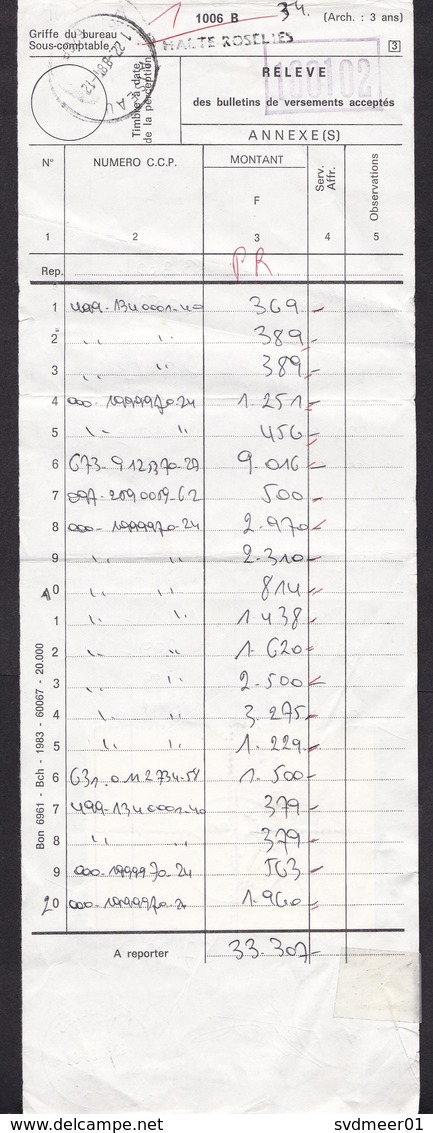 1 1006 B 34. (Arch. : 3 ans)
Griffe du bureau
Sous-comptable
HALTE ROSELIES
3
Timbre à date
de la perception
100102
RELEVE
des bulletins de versements acceptés
ANNEXE(S)
N° NUMERO C.C.P. MONTANT Serv. Affr. Observations
F
1 2 3 4 5
Rep. PR.
1 499-1340001-40 369
2 ,, ,, 389
3 ,, ,, 389
4 000-1999970-24 1.251
5 ,, ,, 456
6 673-9125370-29 9.016
7 097-2090059-62 500
8 000-1999970-24 2.970
9 ,, ,, 2.310
10 ,, ,, 814
1 ,, ,, 1.438
2 ,, ,, 1.620
3 ,, ,, 2.500
4 ,, ,, 3.275
5 ,, ,, 1.229
6 631.0112734-58 1.500
7 499-1340001-40 379
8 ,, ,, 379
9 000-1999970-24 563
20 000-1999970-2 1.960
A reporter 33.307
Bon 6961 - Bch - 1983 - 60067 - 20.000
www.delcampe.net
svdmeer01